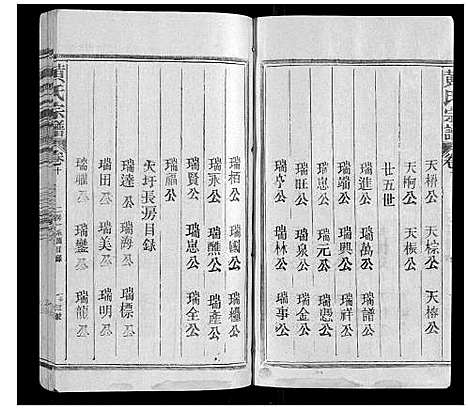 黃氏宗譜 卷
天榙公 天棕公 天椿公
天桐公 天桭公
廿五世
瑞進公 瑞萬公 瑞譜公
瑞端公 瑞興公 瑞祥公
瑞忠公 瑞元公 瑞憑公
瑞旺公 瑞泉公 瑞金公
瑞亭公 瑞林公 瑞事公
瑞栢公 瑞國公 瑞楹公
瑞永公 瑞醮公 瑞產公
瑞賢公 瑞恖公 瑞全公
瑞福公
大圩長房目錄
瑞達公 瑞海公 瑞標公
瑞田公 瑞美公 瑞明公
瑞雁公 瑞鑾公 瑞龍公
黃氏宗譜 卷十